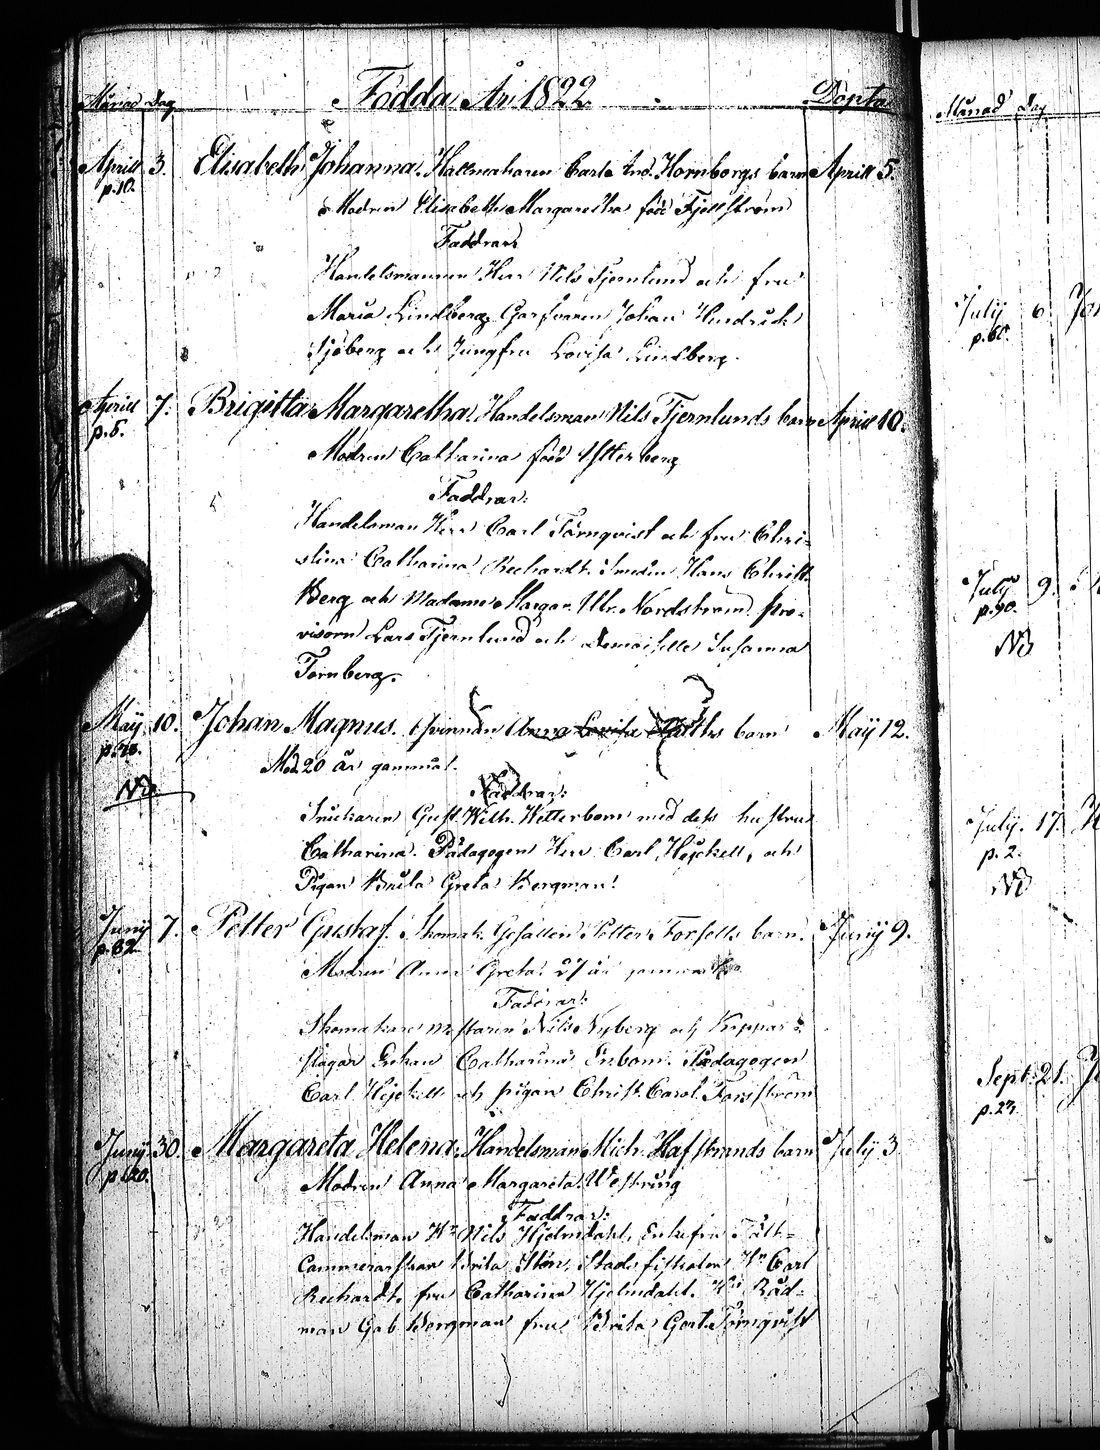 Månad Dag Födda År 1822. Döpta
Aprill 3. Elisabeth Johanna. Hattmakaren Carl And. Hornborgs barn Aprill 5.
p.10.
Modren Elisabeth Margaretha född Fjellström
Faddrar
Handelsmannen Herr Nils Tjernlund och fru
Maria Lindberg. Garfvaren Johan Hindrich
Sjöberg och Jungfru Lovisa Lindberg.
Aprill 7. Brigitta Margaretha. Handelsman Nils Tjernlunds barn Aprill 10.
p.5.
Modren Catharina född Österberg
Faddrar:
Handelsman Herr Carl Törnqvist och fru Chri-
stina Catharina Rechardt. Smeden Hans Christ.
Berg och Madame Margar. Ulr. Nordström. Pro-
visorn Lars Tjernlund och Demoiselle Susanna
Törnberg.
Maij 10. Johan Magnus. Qvinnan Anna Lovisa barn Maij 12.
Mod. 20 år gammal.
NB
Faddrar:
Snickaren Gust. Wilh. Wetterbom med dess hustru
Catharina. Pädagogen Herr Carl Heijckell, och
Pigan Brita Greta Bergman.
Junij 7. Petter Gustaf. Skomak. Gesällen Petter Forsells barn. Junij 9.
p.82.
Modren Anna Greta. 27 år gammal
Faddrar:
Skomakare mästaren Nils Nyberg och Koppar-
slagar Enkan Catharina Enbom. Pædagogen
Carl Heijckell och pigan Christ. Carol. Forsström
Junij 30. Margareta Helena. Handelsman Mich. Hafstrands barn July 3.
Modren Anna Margareta Westring
Faddrar:
Handelsman Hr Nils Hjelmdahl, Enkefru Fält-
Cammererskan Brita Sten, Stadsfiskalen Hr Carl
Rechardt, fru Catharina Hjelmdahl. Hr Råd-
man Gab. Bergman fru Brita Gert. Törnqvist
Månad Dag
July 6. Jo
p.60.
July 9.
p.90.
NB
July. 17.
p.2.
NB
Sept. 21.
p.27.